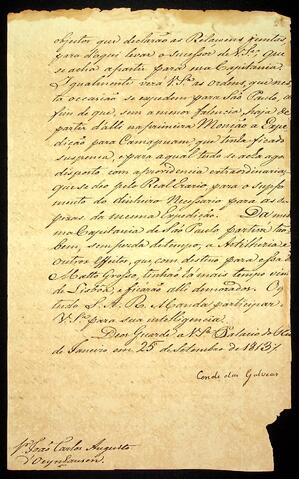 objectos que declarão as Relaçoens juntas,
para d'aqui levar o sucessor de V. Sª; que
se acha a partir para essa Capitania.
Igualmente verá V. Sª as ordens, que nes-
ta occasião se expedem para São Paulo, a
fim de que, sem a menor falencia, haja de
partir d'alli na primeira Monção a Expe-
dição para Camapuam, que tinha ficado
suspensa, e para a qual tudo se acha ago-
disposto com a providencia extraordinaria,
que se deo pelo Real Erario, para o supri-
mento do dinheiro necessario para as des-
pezas da mesma Expedição. Da mes-
ma Capitania de São Paulo partirá tam-
bem, sem perda de tempo, a Artilheria e
outros effeitos, que com destino para essa de
Matto Grosso, tinhão ha mais tempo vindo
de Lisboa, e ficarão alli demorados. O q
tudo S. A. R. Manda participar a
V. Sª para sua intelligencia.
Deos Guarde a V. Sª Palacio do Rio
de Janeiro em 25 de Setembro de 1813
Conde das Galveas
Sr. João Carlos Augusto
d'Oeynhausen.